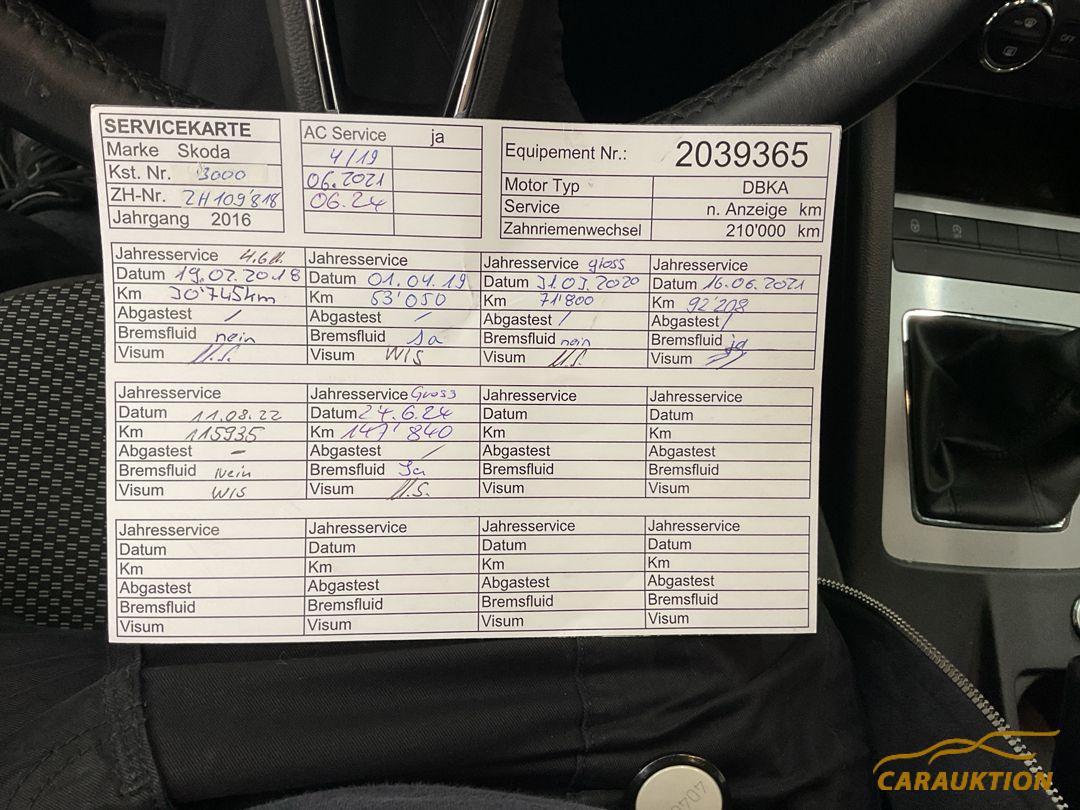 SERVICEKARTE
Marke Skoda
Kst. Nr. 3000
ZH-Nr. ZH109'818
Jahrgang 2016
AC Service ja
4/19
06.2021
06.24
Equipement Nr.: 2039365
Motor Typ DBKA
Service n. Anzeige km
Zahnriemenwechsel 210'000 km
Jahresservice
Datum 19.02.2018
Km 30'745km
Abgastest /
Bremsfluid nein
Visum
Jahresservice
Datum 01.04.19
Km 53'050
Abgastest /
Bremsfluid Ja
Visum WIS
Jahresservice gross
Datum 31.03.2020
Km 71'800
Abgastest /
Bremsfluid nein
Visum
Jahresservice
Datum 16.06.2021
Km 92'298
Abgastest /
Bremsfluid ja
Visum
Jahresservice
Datum 11.08.22
Km 115935
Abgastest -
Bremsfluid Nein
Visum WIS
Jahresservice Gross
Datum 24.6.24
Km 147'840
Abgastest /
Bremsfluid Ja
Visum
Jahresservice
Datum
Km
Abgastest
Bremsfluid
Visum
Jahresservice
Datum
Km
Abgastest
Bremsfluid
Visum
Jahresservice
Datum
Km
Abgastest
Bremsfluid
Visum
Jahresservice
Datum
Km
Abgastest
Bremsfluid
Visum
Jahresservice
Datum
Km
Abgastest
Bremsfluid
Visum
Jahresservice
Datum
Km
Abgastest
Bremsfluid
Visum
OFF
CARAUKTION